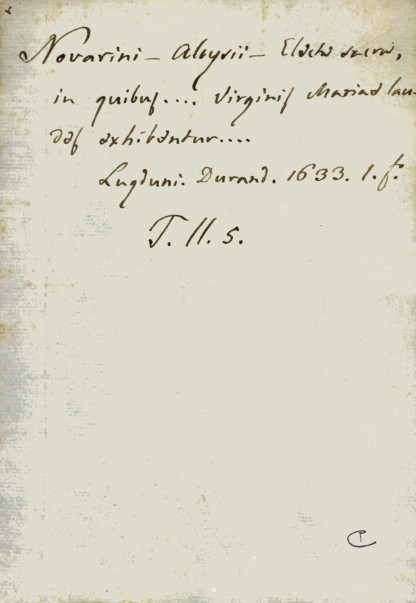 Novarini - Aloysii - Electi sacri,
in quibus.... Virginis Mariae lau-
des exhibentur....
Lugduni. Durand. 1633. 1. f.º
T. II. 5.